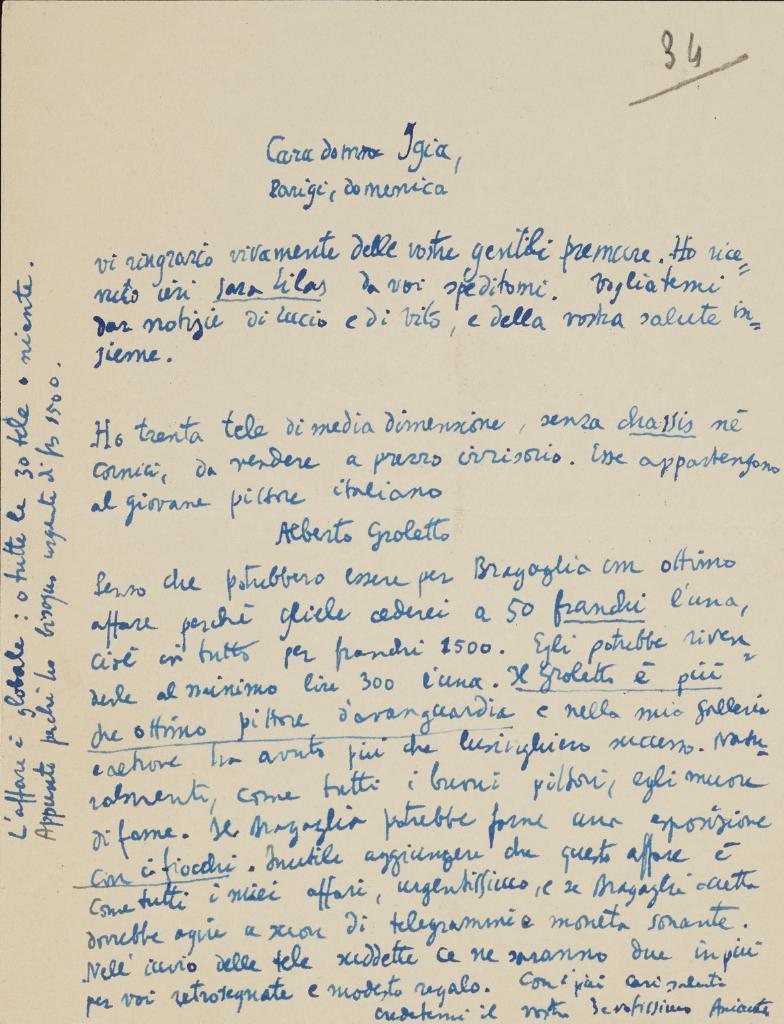 34
Cara donna Igia,
Parigi, domenica
vi ringrazio vivamente delle vostre gentili premure. Ho rice=
vuto ieri Sara Lilas da voi speditomi. Vogliatemi
dar notizie di Lucio e di Vito, e della vostra salute in=
sieme.
Ho trenta tele di media dimensione, senza chassis nè
cornici, da vendere a prezzo irrisorio. Esse appartengono
al giovane pittore italiano
Alberto Groletto
Penso che potrebbero essere per Bragaglia un ottimo
affare perchè gliele cederei a 50 franchi l'una,
cioè in tutto per franchi 1500. Egli potrebbe riven=
derle al minimo lire 300 l'una. Il Groletto è più
che ottimo pittore d'avanguardia e nella mia galleria
e altrove ha avuto più che lusinghiero successo. Natu=
ralmente, come tutti i buoni pittori, egli muore
di fame. Il Bragaglia potrebbe farne una esposizione
con i fiocchi. Inutile aggiungere che questo affare è
come tutti i miei affari, urgentissimo, e se Bragaglia accetta
dovrebbe agire a suon di telegrammi e moneta sonante.
Nell' invio delle tele suddette ce ne saranno due in più
per voi retrosegnate e modesto regalo. Con i più cari saluti
credetemi il vostro devotissimo Aniante
L'affare è globale: o tutte le 30 tele o niente.
Appunto perchè ho bisogno urgente di frs 1500.